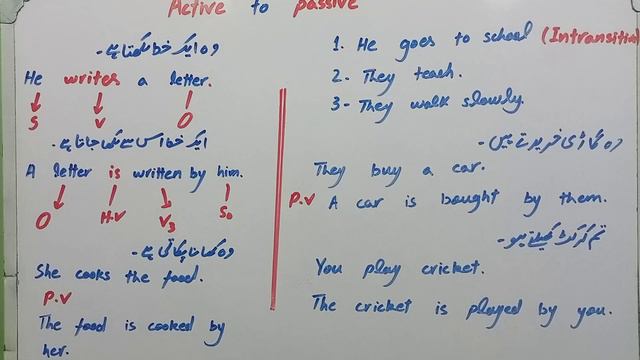 Active to passive
وہ ایک خط لکھتا ہے۔
He writes a letter.
S V O
ایک خط اس سے لکھا جاتا ہے۔
A letter is written by him.
O H.V V3 So
وہ کھانا پکاتی ہے۔
She cooks the food.
P.V
The food is cooked by
her.
1. He goes to school (Intransitive
2- They teach.
3- They walk slowly.
وہ گاڑی خریدتے ہیں۔
They buy a car.
P.V A car is bought by them.
تم کرکٹ کھیلتے ہو۔
You play cricket.
The cricket is played by you.